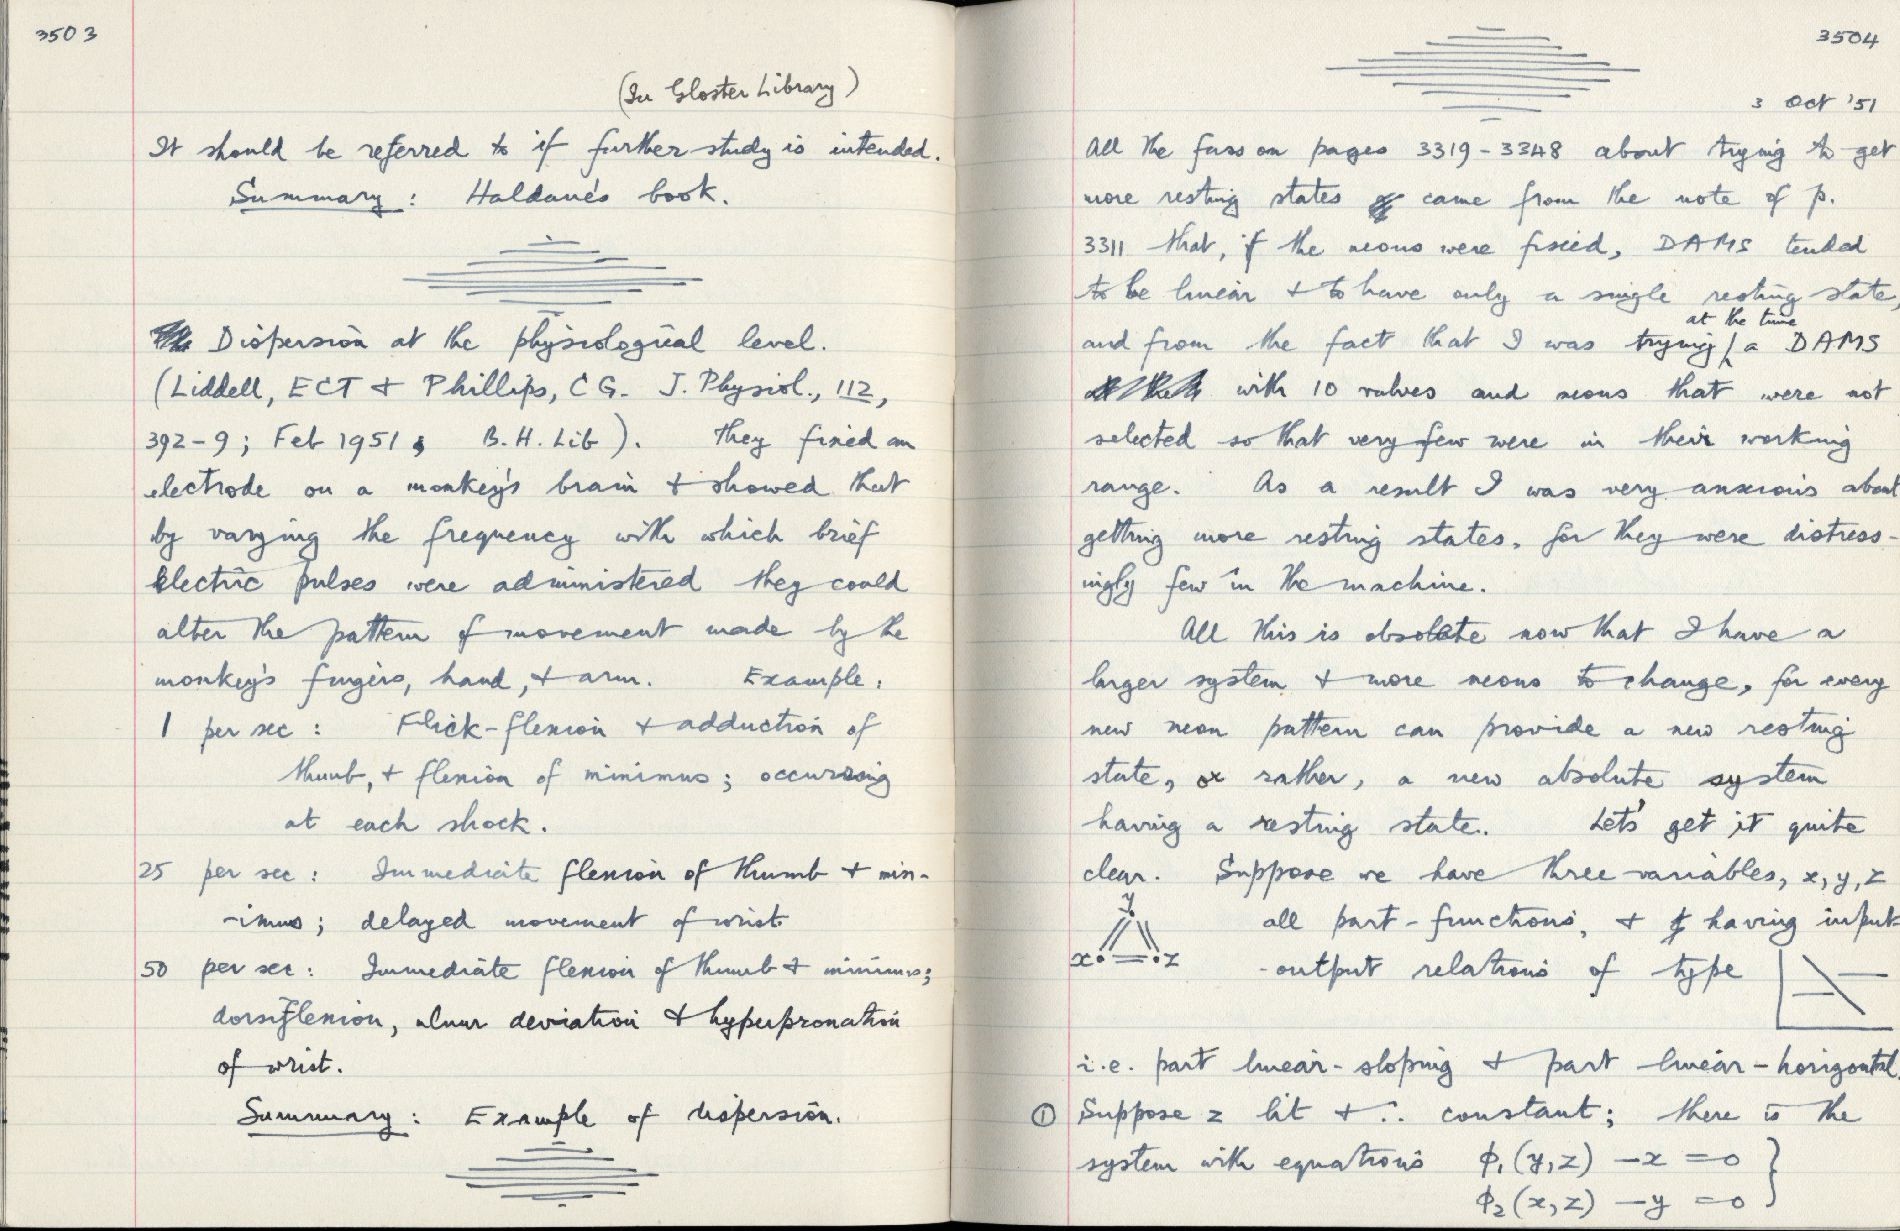 3503
(In Gloster Library)
It should be referred to if further study is intended.
Summary: Haldane's book.
Dispersion at the physiological level.
(Liddell, ECT & Phillips, CG. J. Physiol., 112,
392-9; Feb 1951, B.H. Lib). They fixed an
electrode on a monkey's brain & showed that
by varying the frequency with which brief
electric pulses were administered they could
alter the pattern of movement made by the
monkey's fingers, hand, & arm. Example:
1 per sec: Flick-flexion & adduction of
thumb, & flexion of minimus; occurring
at each shock.
25 per sec: Immediate flexion of thumb & min-
-imus; delayed movement of wrist.
50 per sec: Immediate flexion of thumb & minimus;
dorsiflexion, ulnar deviation & hyperpronation
of wrist.
Summary: Example of dispersion.
3504
3 Oct '51
All the fuss on pages 3319-3348 about trying to get
more resting states came from the note of p.
3311 that, if the neons were fixed, DAMS tended
to be linear & to have only a single resting state,
at the time
and from the fact that I was trying a DAMS
with 10 valves and neons that were not
selected so that very few were in their working
range. As a result I was very anxious about
getting more resting states, for they were distress-
ingly few in the machine.
All this is obsolete now that I have a
larger system & more neons to change, for every
new neon pattern can provide a new resting
state, or rather, a new absolute system
having a resting state. Let's get it quite
clear. Suppose we have three variables, x, y, z
y
x z
all part-functions, & having input-
-output relations of type
i.e. part linear-sloping & part linear-horizontal.
① Suppose z lit & ∴ constant; there is the
system with equations ϕ₁(y,z) - x = 0 }
ϕ₂(x,z) - y = 0